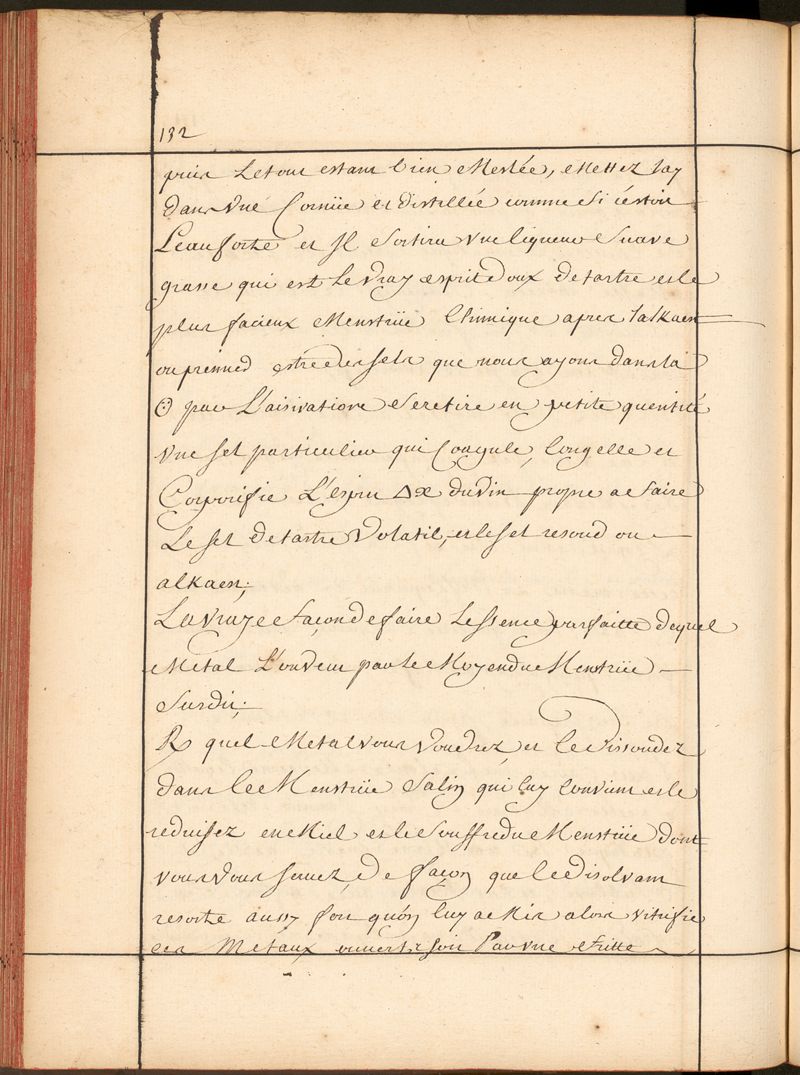 132
puis Letout estant bien Meslée, Mettez Lay
dans Vne Cornüe et distillée comme Si c'estoit
Leauforte et Jl Sortira vne liqueur Suave
grasse qui est Le Vray esprit Doux de tartre et le
plus facieux Menstrüe Chimique apres lalkaest
ou premied estre des sels que nous ayons dans la
☉ par L'aisivation Seretire en petite quentité
vne sel particulier qui Coagule, Congelle et
Corporifie L'esprit du vin propre a Faire
Le Sel de tartre Volatil, et le sel resoud ou
alkaest;
La Vraye façon de faire Lessence parfaitte dequel
Metal L'on Veut par le Moyen du Menstrüe
Surdit;
R quel Metal vous Voudrez, et le Dissoudez
dans le Menstrüe Salin qui luy Convient et le
reduisez en Miel et le Souffre du Menstrüe dont
vous vous servez, De façon que le Disolvant
resorte aussy fort qu'on luy a Mis alors vitrifie
les Metaux ouvert soit Par vne Fritte